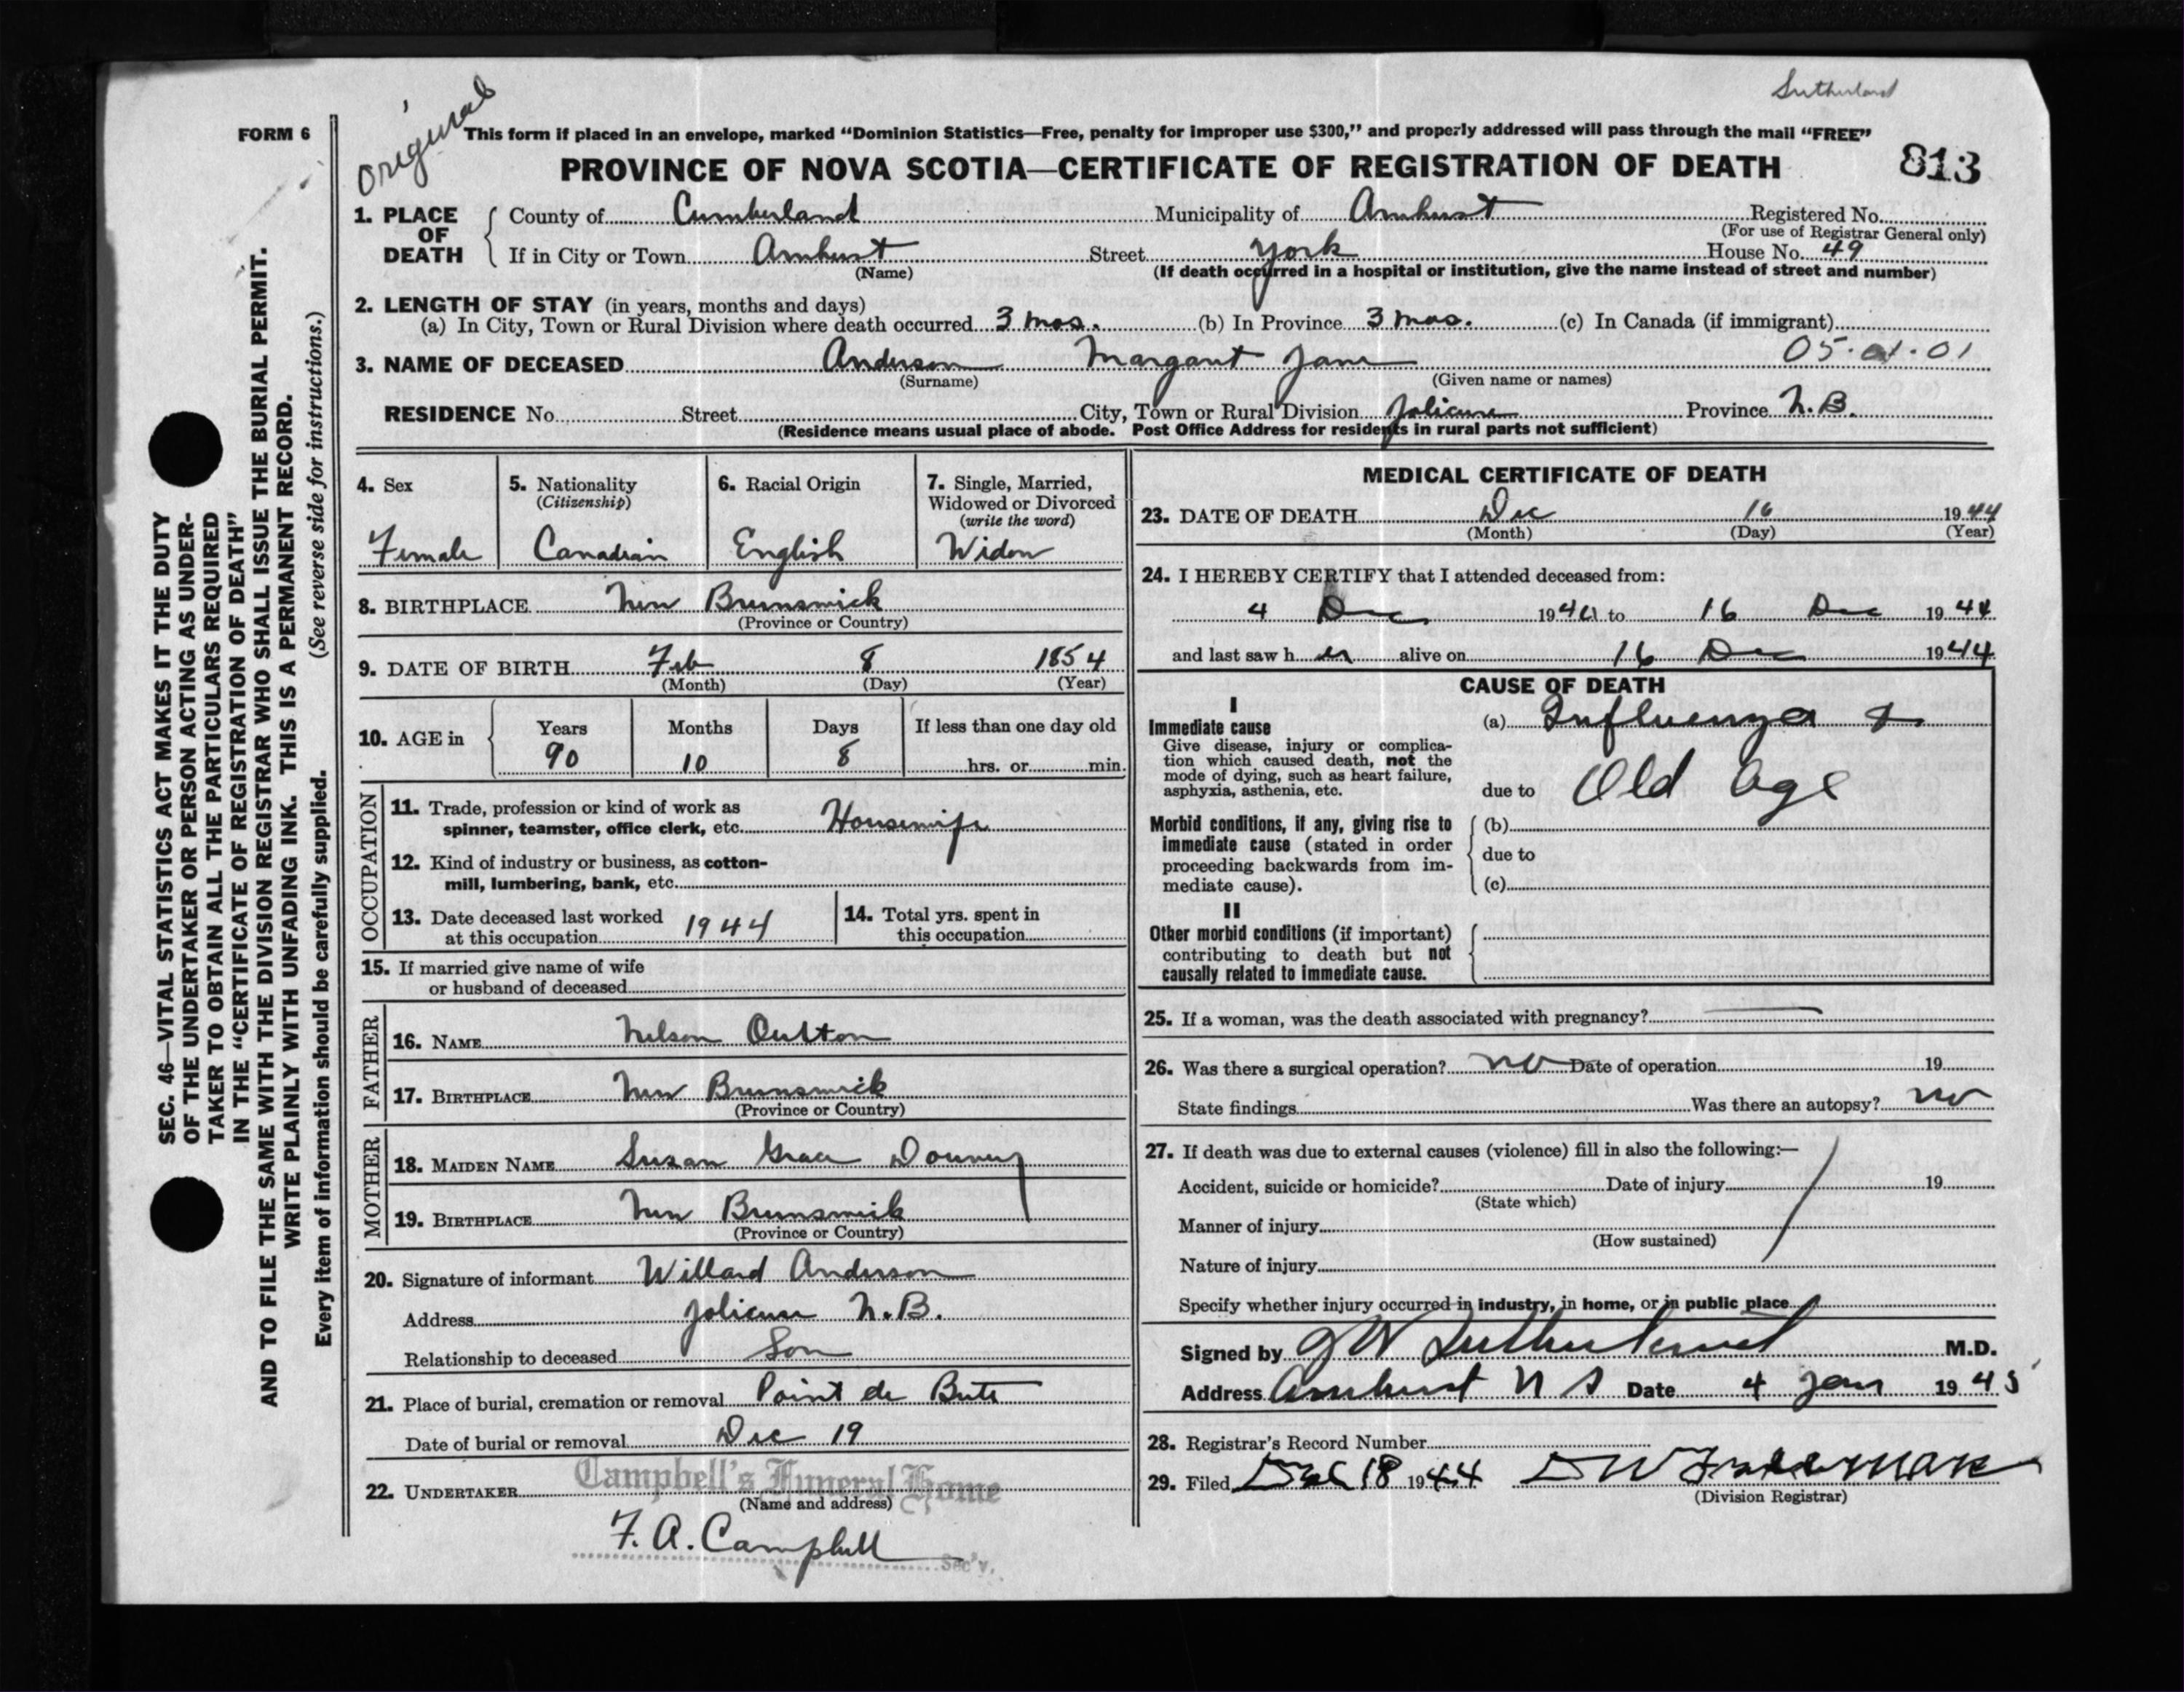 Sutherland
Original
FORM 6
This form if placed in an envelope, marked “Dominion Statistics—Free, penalty for improper use $300,” and properly addressed will pass through the mail “FREE”
PROVINCE OF NOVA SCOTIA—CERTIFICATE OF REGISTRATION OF DEATH
813
1. PLACE OF DEATH
County of Cumberland Municipality of Amherst Registered No.
(For use of Registrar General only)
If in City or Town Amherst Street York House No. 49
(Name) (If death occurred in a hospital or institution, give the name instead of street and number)
2. LENGTH OF STAY (in years, months and days)
(a) In City, Town or Rural Division where death occurred 3 mos. (b) In Province 3 mos. (c) In Canada (if immigrant)
3. NAME OF DECEASED Anderson Margaret Jane 05.01.01
(Surname) (Given name or names)
RESIDENCE No. Street City, Town or Rural Division Jolicure Province N.B.
(Residence means usual place of abode. Post Office Address for residents in rural parts not sufficient)
4. Sex
Female
5. Nationality
(Citizenship)
Canadian
6. Racial Origin
English
7. Single, Married,
Widowed or Divorced
(write the word)
Widow
8. BIRTHPLACE New Brunswick
(Province or Country)
9. DATE OF BIRTH Feb 8 1854
(Month) (Day) (Year)
10. AGE in
Years Months Days If less than one day old
90 10 8 hrs. or min.
OCCUPATION
11. Trade, profession or kind of work as
spinner, teamster, office clerk, etc. Housewife
12. Kind of industry or business, as cotton-
mill, lumbering, bank, etc.
13. Date deceased last worked
at this occupation 1944
14. Total yrs. spent in
this occupation
15. If married give name of wife
or husband of deceased
FATHER
16. NAME Nelson Oulton
17. BIRTHPLACE New Brunswick
(Province or Country)
MOTHER
18. MAIDEN NAME Susan Grace Downey
19. BIRTHPLACE New Brunswick
(Province or Country)
20. Signature of informant Willard Anderson
Address Jolicure N.B.
Relationship to deceased Son
21. Place of burial, cremation or removal Point de Bute
Date of burial or removal Dec 19
22. UNDERTAKER Campbell's Funeral Home
(Name and address)
F. A. Campbell
Sec'y.
MEDICAL CERTIFICATE OF DEATH
23. DATE OF DEATH Dec 16 1944
(Month) (Day) (Year)
24. I HEREBY CERTIFY that I attended deceased from:
4 Dec 1944 to 16 Dec 1944
and last saw her alive on 16 Dec 1944
CAUSE OF DEATH
I
Immediate cause
Give disease, injury or complica-
tion which caused death, not the
mode of dying, such as heart failure,
asphyxia, asthenia, etc.
(a) Influenza &
due to Old Age
Morbid conditions, if any, giving rise to
immediate cause (stated in order
proceeding backwards from im-
mediate cause).
(b)
due to
(c)
II
Other morbid conditions (if important)
contributing to death but not
causally related to immediate cause.
25. If a woman, was the death associated with pregnancy?
26. Was there a surgical operation? no Date of operation 19
State findings Was there an autopsy? no
27. If death was due to external causes (violence) fill in also the following:—
Accident, suicide or homicide? Date of injury 19
(State which)
Manner of injury
(How sustained)
Nature of injury
Specify whether injury occurred in industry, in home, or in public place
Signed by J W Sutherland M.D.
Address Amherst N S Date 4 Jan 1945
28. Registrar's Record Number
29. Filed Dec 18 1944
(Division Registrar)
SEC. 46—VITAL STATISTICS ACT MAKES IT THE DUTY
OF THE UNDERTAKER OR PERSON ACTING AS UNDER-
TAKER TO OBTAIN ALL THE PARTICULARS REQUIRED
IN THE “CERTIFICATE OF REGISTRATION OF DEATH”
AND TO FILE THE SAME WITH THE DIVISION REGISTRAR WHO SHALL ISSUE THE BURIAL PERMIT.
WRITE PLAINLY WITH UNFADING INK. THIS IS A PERMANENT RECORD.
Every item of information should be carefully supplied. (See reverse side for instructions.)